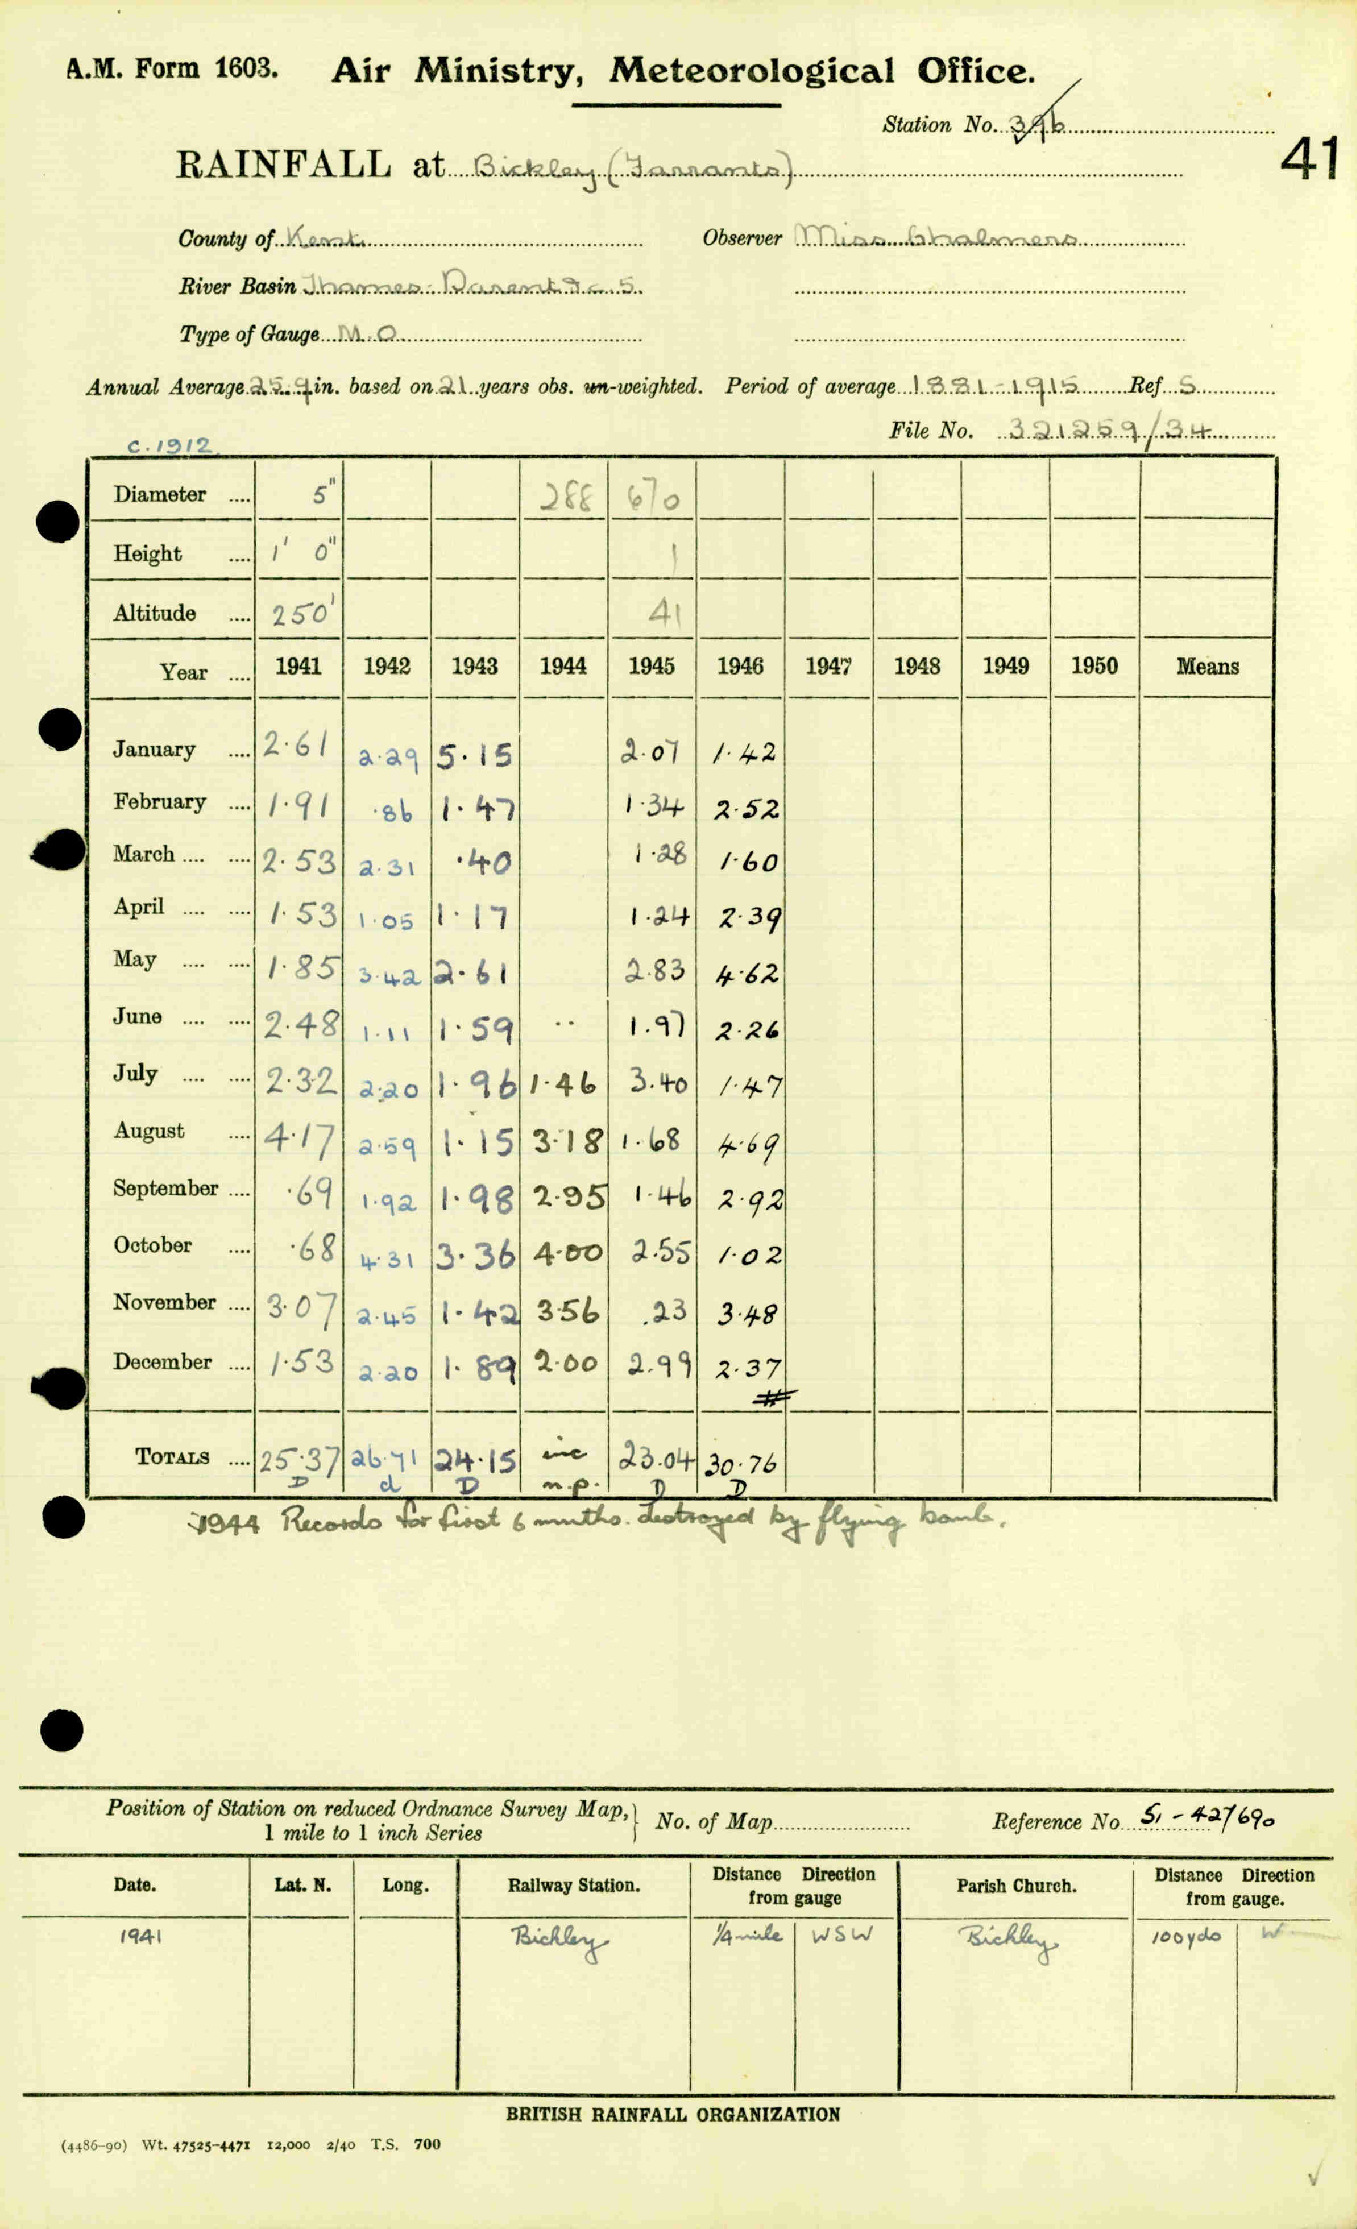 A.M. Form 1603. Air Ministry, Meteorological Office.
Station No. 396
41
RAINFALL at Bickley (Farrants)
County of Kent Observer Miss Chalmers
River Basin Thames-Darent &c 5
Type of Gauge M.O
Annual Average 25.9 in. based on 21 years obs. un-weighted. Period of average 1881-1915 Ref S
File No. 321259/34
c.1912
Diameter .... 5" 288 670
Height .... 1' 0" 1
Altitude .... 250' 41
Year .... 1941 1942 1943 1944 1945 1946 1947 1948 1949 1950 Means
January .... 2.61 2.29 5.15 2.07 1.42
February .... 1.91 .86 1.47 1.34 2.52
March .... .... 2.53 2.31 .40 1.28 1.60
April .... .... 1.53 1.05 1.17 1.24 2.39
May .... .... 1.85 3.42 2.61 2.83 4.62
June .... .... 2.48 1.11 1.59 .. 1.97 2.26
July .... .... 2.32 2.20 1.96 1.46 3.40 1.47
August .... 4.17 2.59 1.15 3.18 1.68 4.69
September .... .69 1.92 1.98 2.95 1.46 2.92
October .... .68 4.31 3.36 4.00 2.55 1.02
November .... 3.07 2.45 1.42 3.56 .23 3.48
December .... 1.53 2.20 1.89 2.00 2.99 2.37
TOTALS .... 25.37 26.71 24.15 inc 23.04 30.76
D d D n.p. D D
1944 Records for first 6 mnths. destroyed by flying bomb.
Position of Station on reduced Ordnance Survey Map, } No. of Map Reference No S1 - 427690
1 mile to 1 inch Series
Date. Lat. N. Long. Railway Station. Distance Direction from gauge Parish Church. Distance Direction from gauge.
1941 Bickley 1/4 mile WSW Bickley 100 yds W
BRITISH RAINFALL ORGANIZATION
(4486-90) Wt. 47525-4471 12,000 2/40 T.S. 700